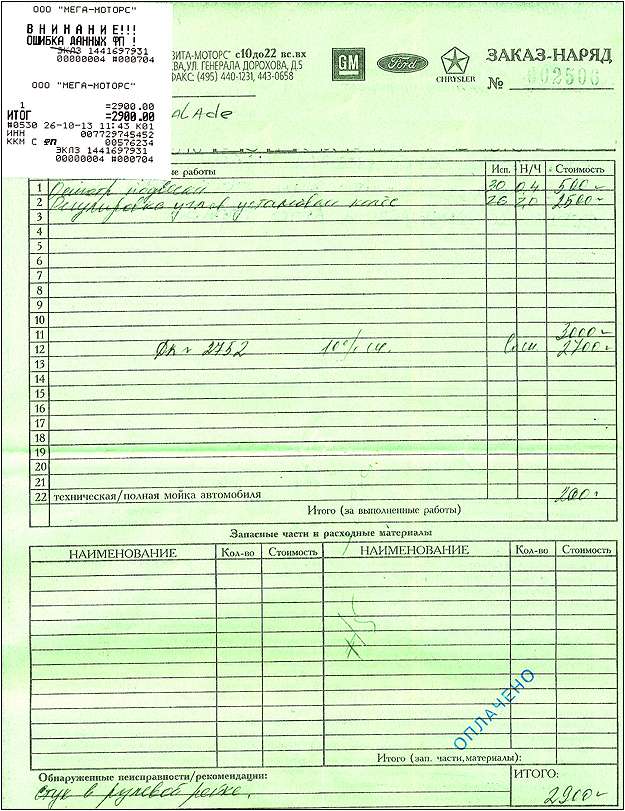 ООО "МЕГА-МОТОРС"
ВНИМАНИЕ!!!
ОШИБКА ДАННЫХ ФП !
ЭКЛЗ 1441697931
00000004 #000704
ООО "МЕГА-МОТОРС"
1 =2900.00
ИТОГ =2900.00
#0530 26-10-13 11:43 К01
ИНН 007729745452
ККМ С ФП 00576234
ЭКЛЗ 1441697931
00000004 #000704
ВИТА-МОТОРС" с10до22 вс.вх
ВА,УЛ. ГЕНЕРАЛА ДОРОХОВА, Д.5
ФАКС: (495) 440-1231, 443-0658
GM Ford CHRYSLER
ЗАКАЗ-НАРЯД
№ 002506
работы Исп. Н/Ч Стоимость
1 Осмотр подвески 30 0,4 500
2 Регулировка углов установки колёс 26 2,0 2500
3
4
5
6
7
8
9
10
11 3000
12 2752 10% 2700
13
14
15
16
17
18
19
20
21
22 техническая/полная мойка автомобиля 200
Итого (за выполненные работы)
Запасные части и расходные материалы
НАИМЕНОВАНИЕ Кол-во Стоимость НАИМЕНОВАНИЕ Кол-во Стоимость
ОПЛАЧЕНО
Итого (зап. части,материалы):
Обнаруженные неисправности/рекомендации: ИТОГО:
стук в рулевой рейке. 2900